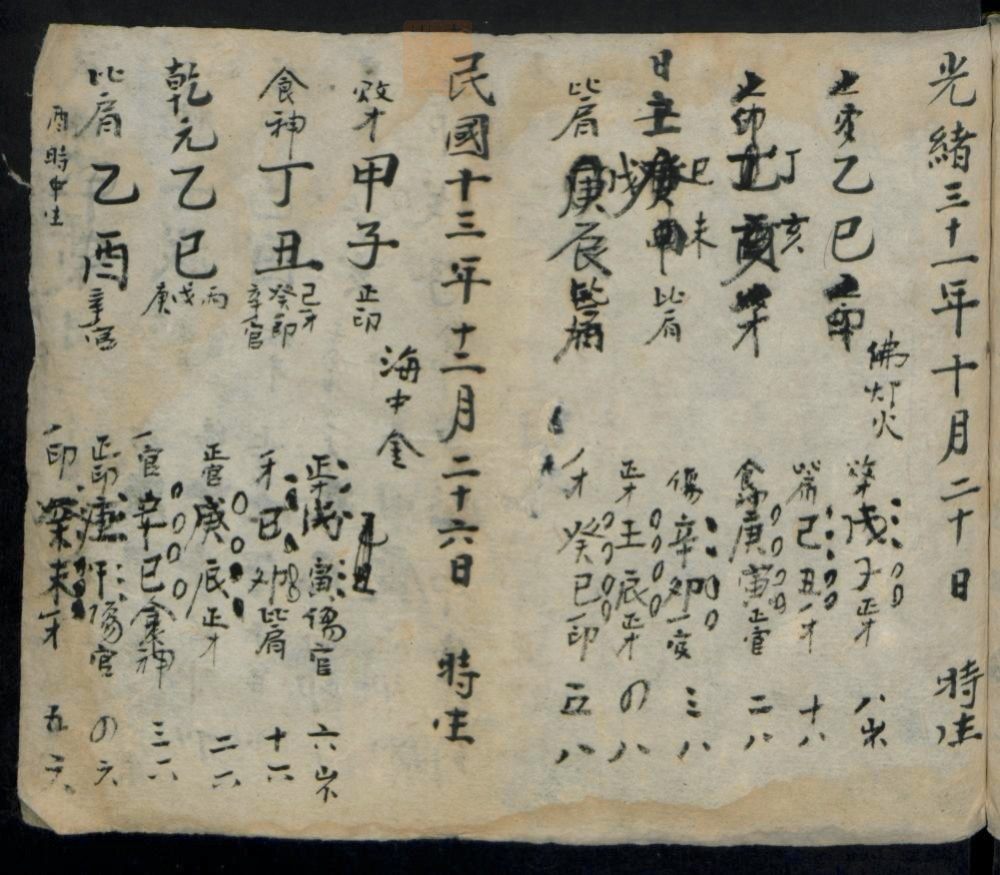 光緒三十一年十月二十日 時生
佛灯火
乙巳
丁亥
日主 巳未 比肩
比肩 庚辰
戊子正才 八
己丑一才 十八
庚寅正官 二八
傷 辛卯 三八
正才 壬辰正才 〇八
一才 癸巳一印 五八
民國十三年十二月二十六日 時生
海中金
甲子 正印
食神 丁丑 己才 癸印 辛官
乾元乙巳 丙戊庚
比肩 乙酉 辛官
酉時中生
正才 戊寅傷官 六
一才 己卯比肩 十六
正官 庚辰正才 二六
一官 辛巳食神 三六
正印 傷官 〇六
一印 癸未一才 五六